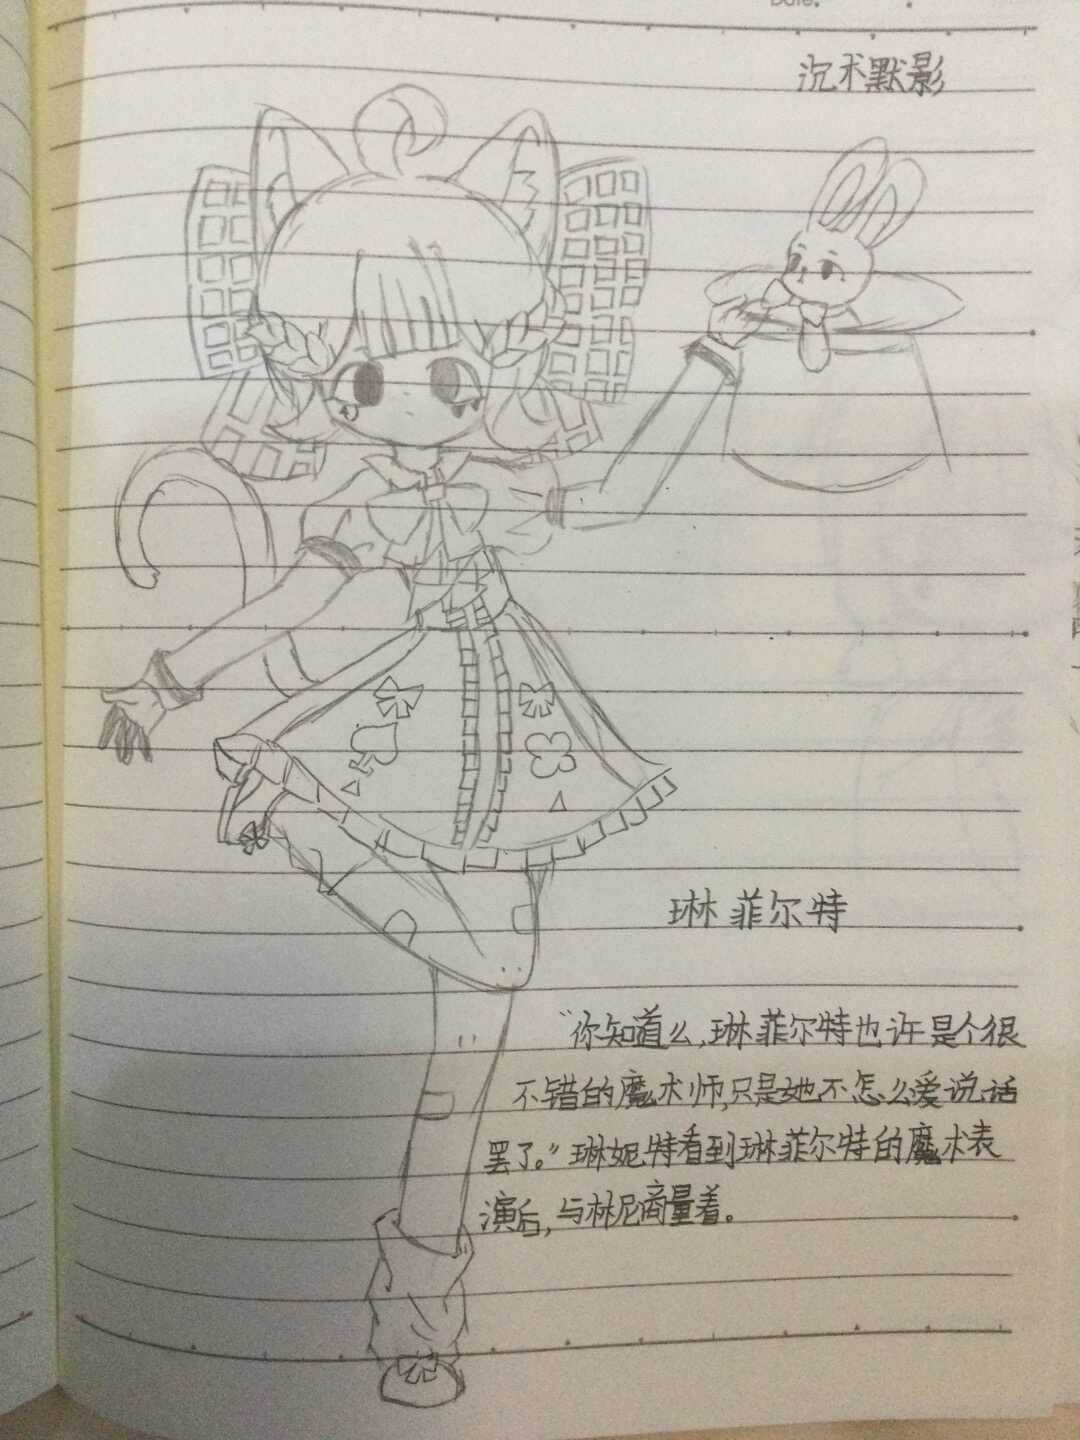 Date.
沉术默影
琳菲尔特
“你知道么,琳菲尔特也许是个很
不错的魔术师,只是她不怎么爱说话
罢了。”琳妮特看到琳菲尔特的魔术表
演后,与林尼商量着。